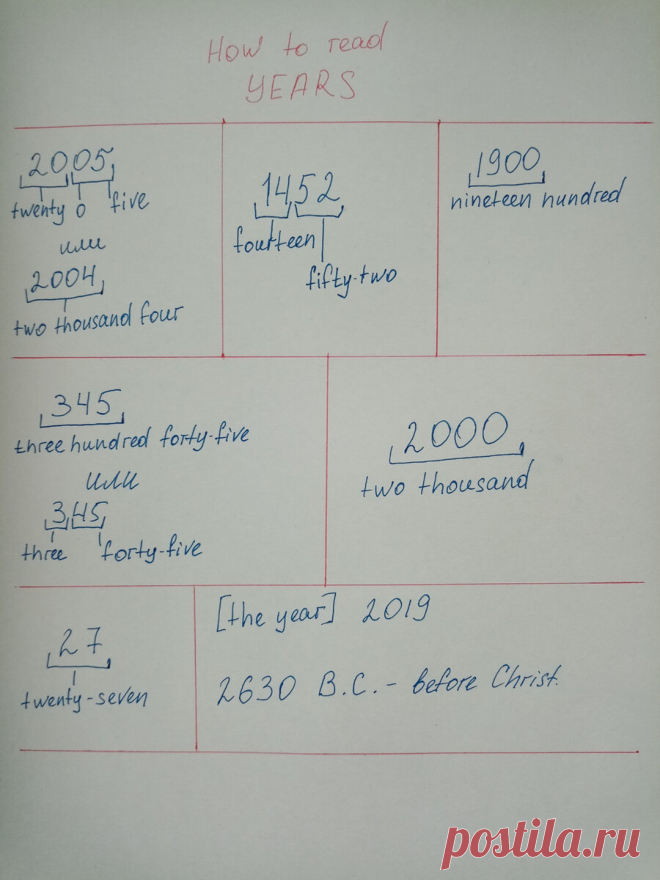 How to read
YEARS
2005
twenty o five
или
2004
two thousand four
1452
fourteen
fifty-two
1900
nineteen hundred
345
three hundred forty-five
или
345
three forty-five
2000
two thousand
27
twenty-seven
[the year] 2019
2630 B.C. - before Christ.
postila.ru